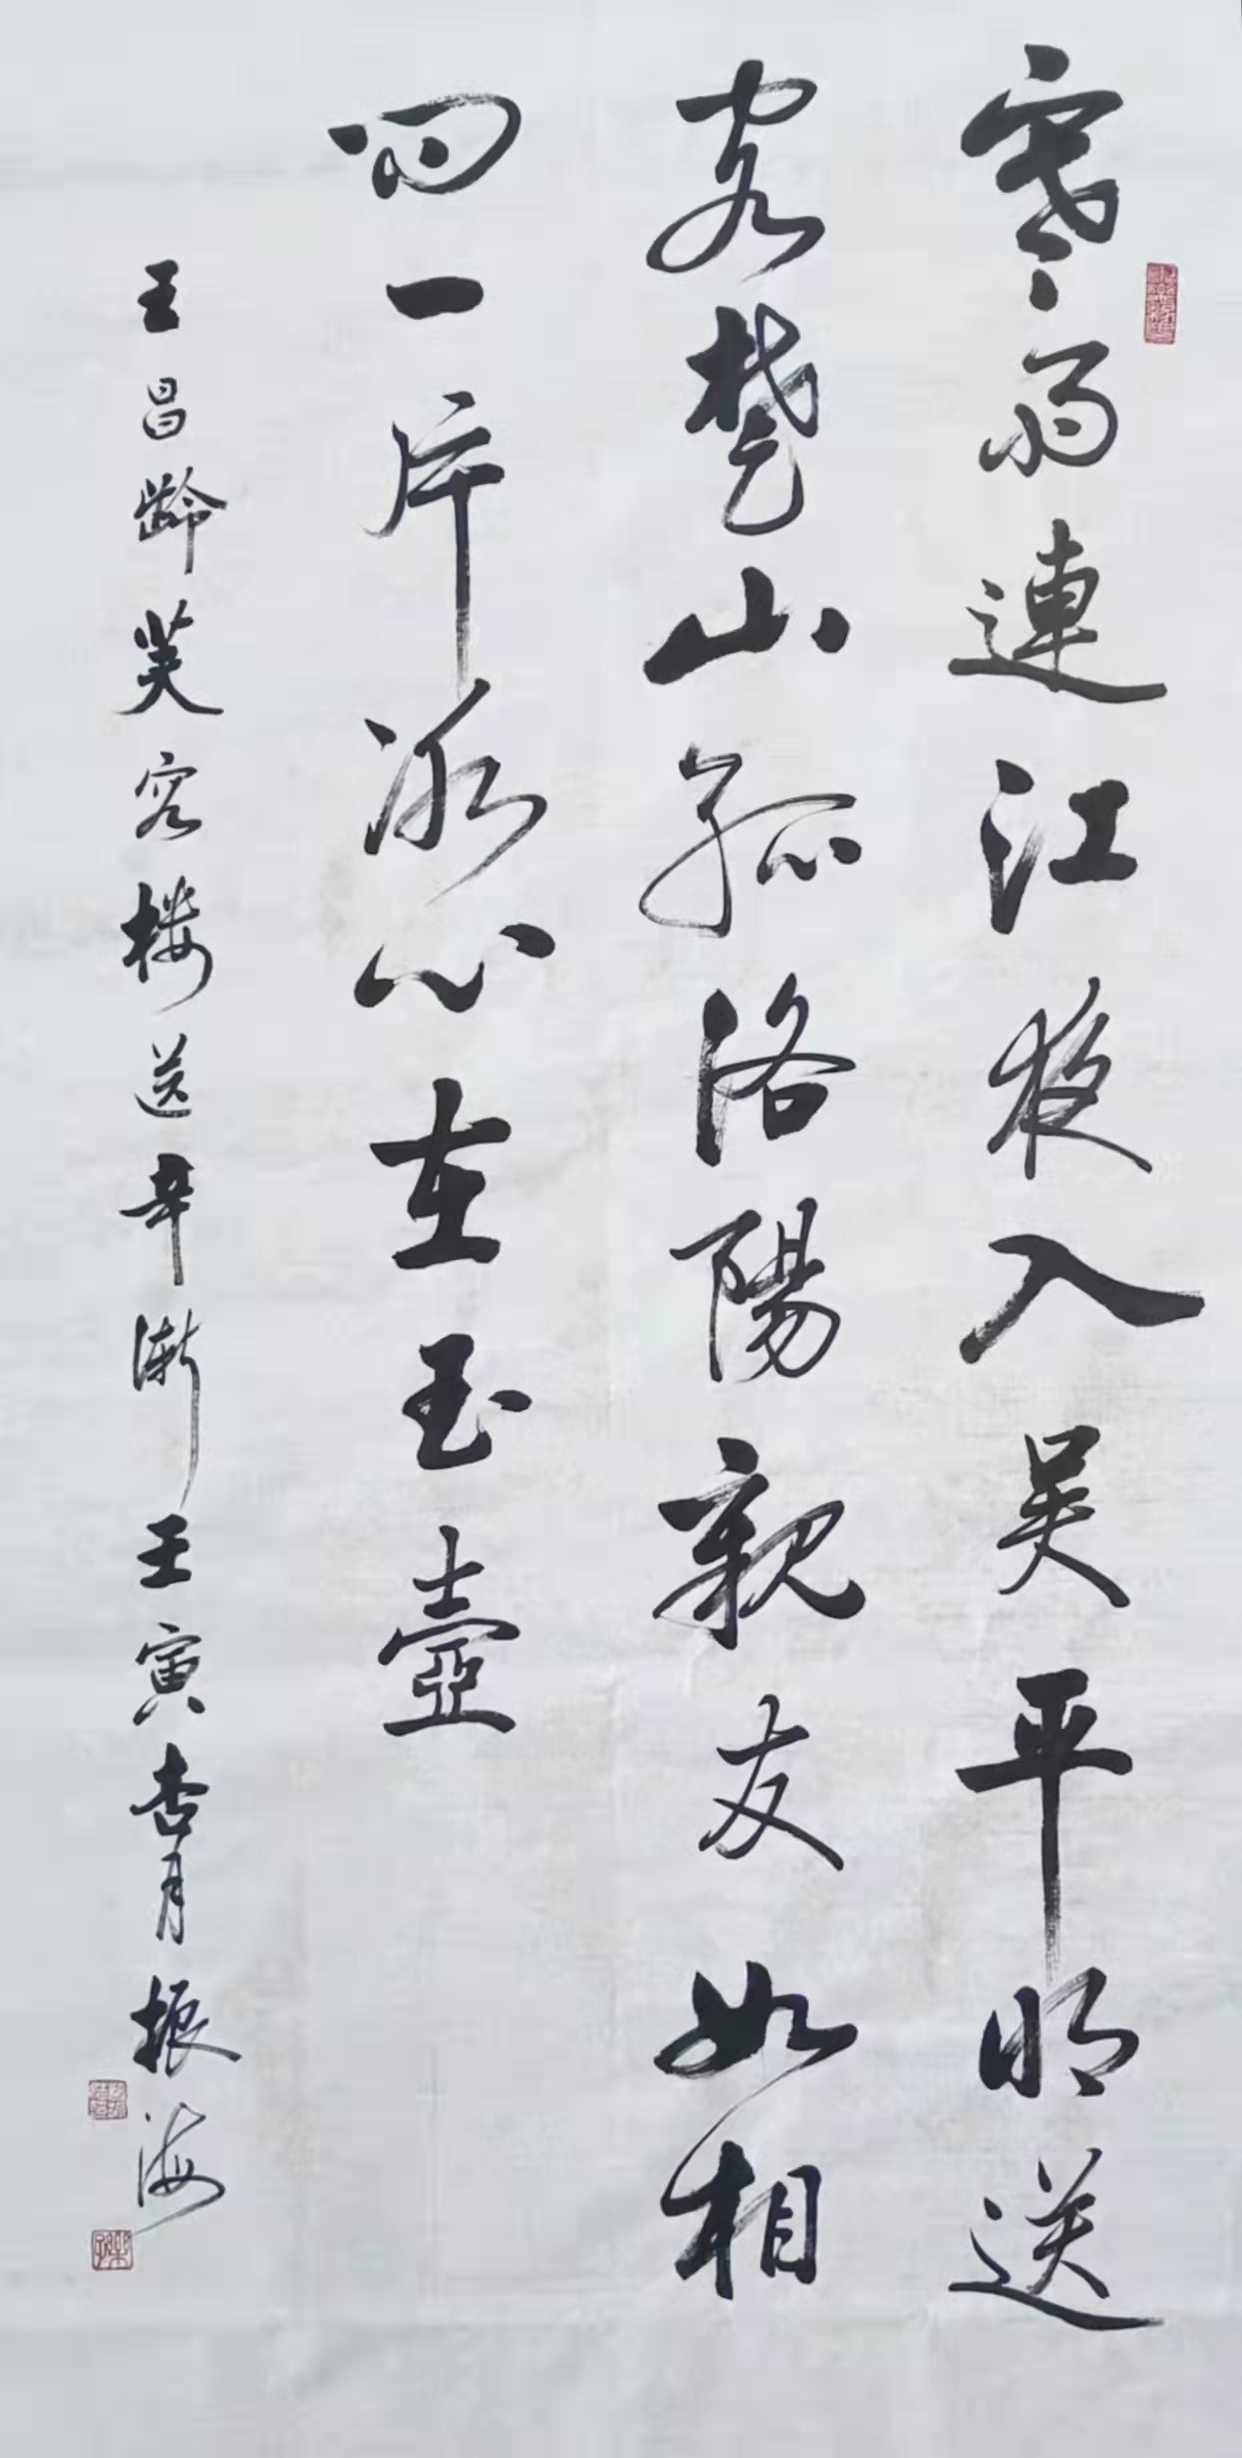 寒雨連江夜入吴平明送
客楚山孤洛陽親友如相
问一片冰心在玉壺
王昌齡芙容楼送辛漸壬寅杏月振海